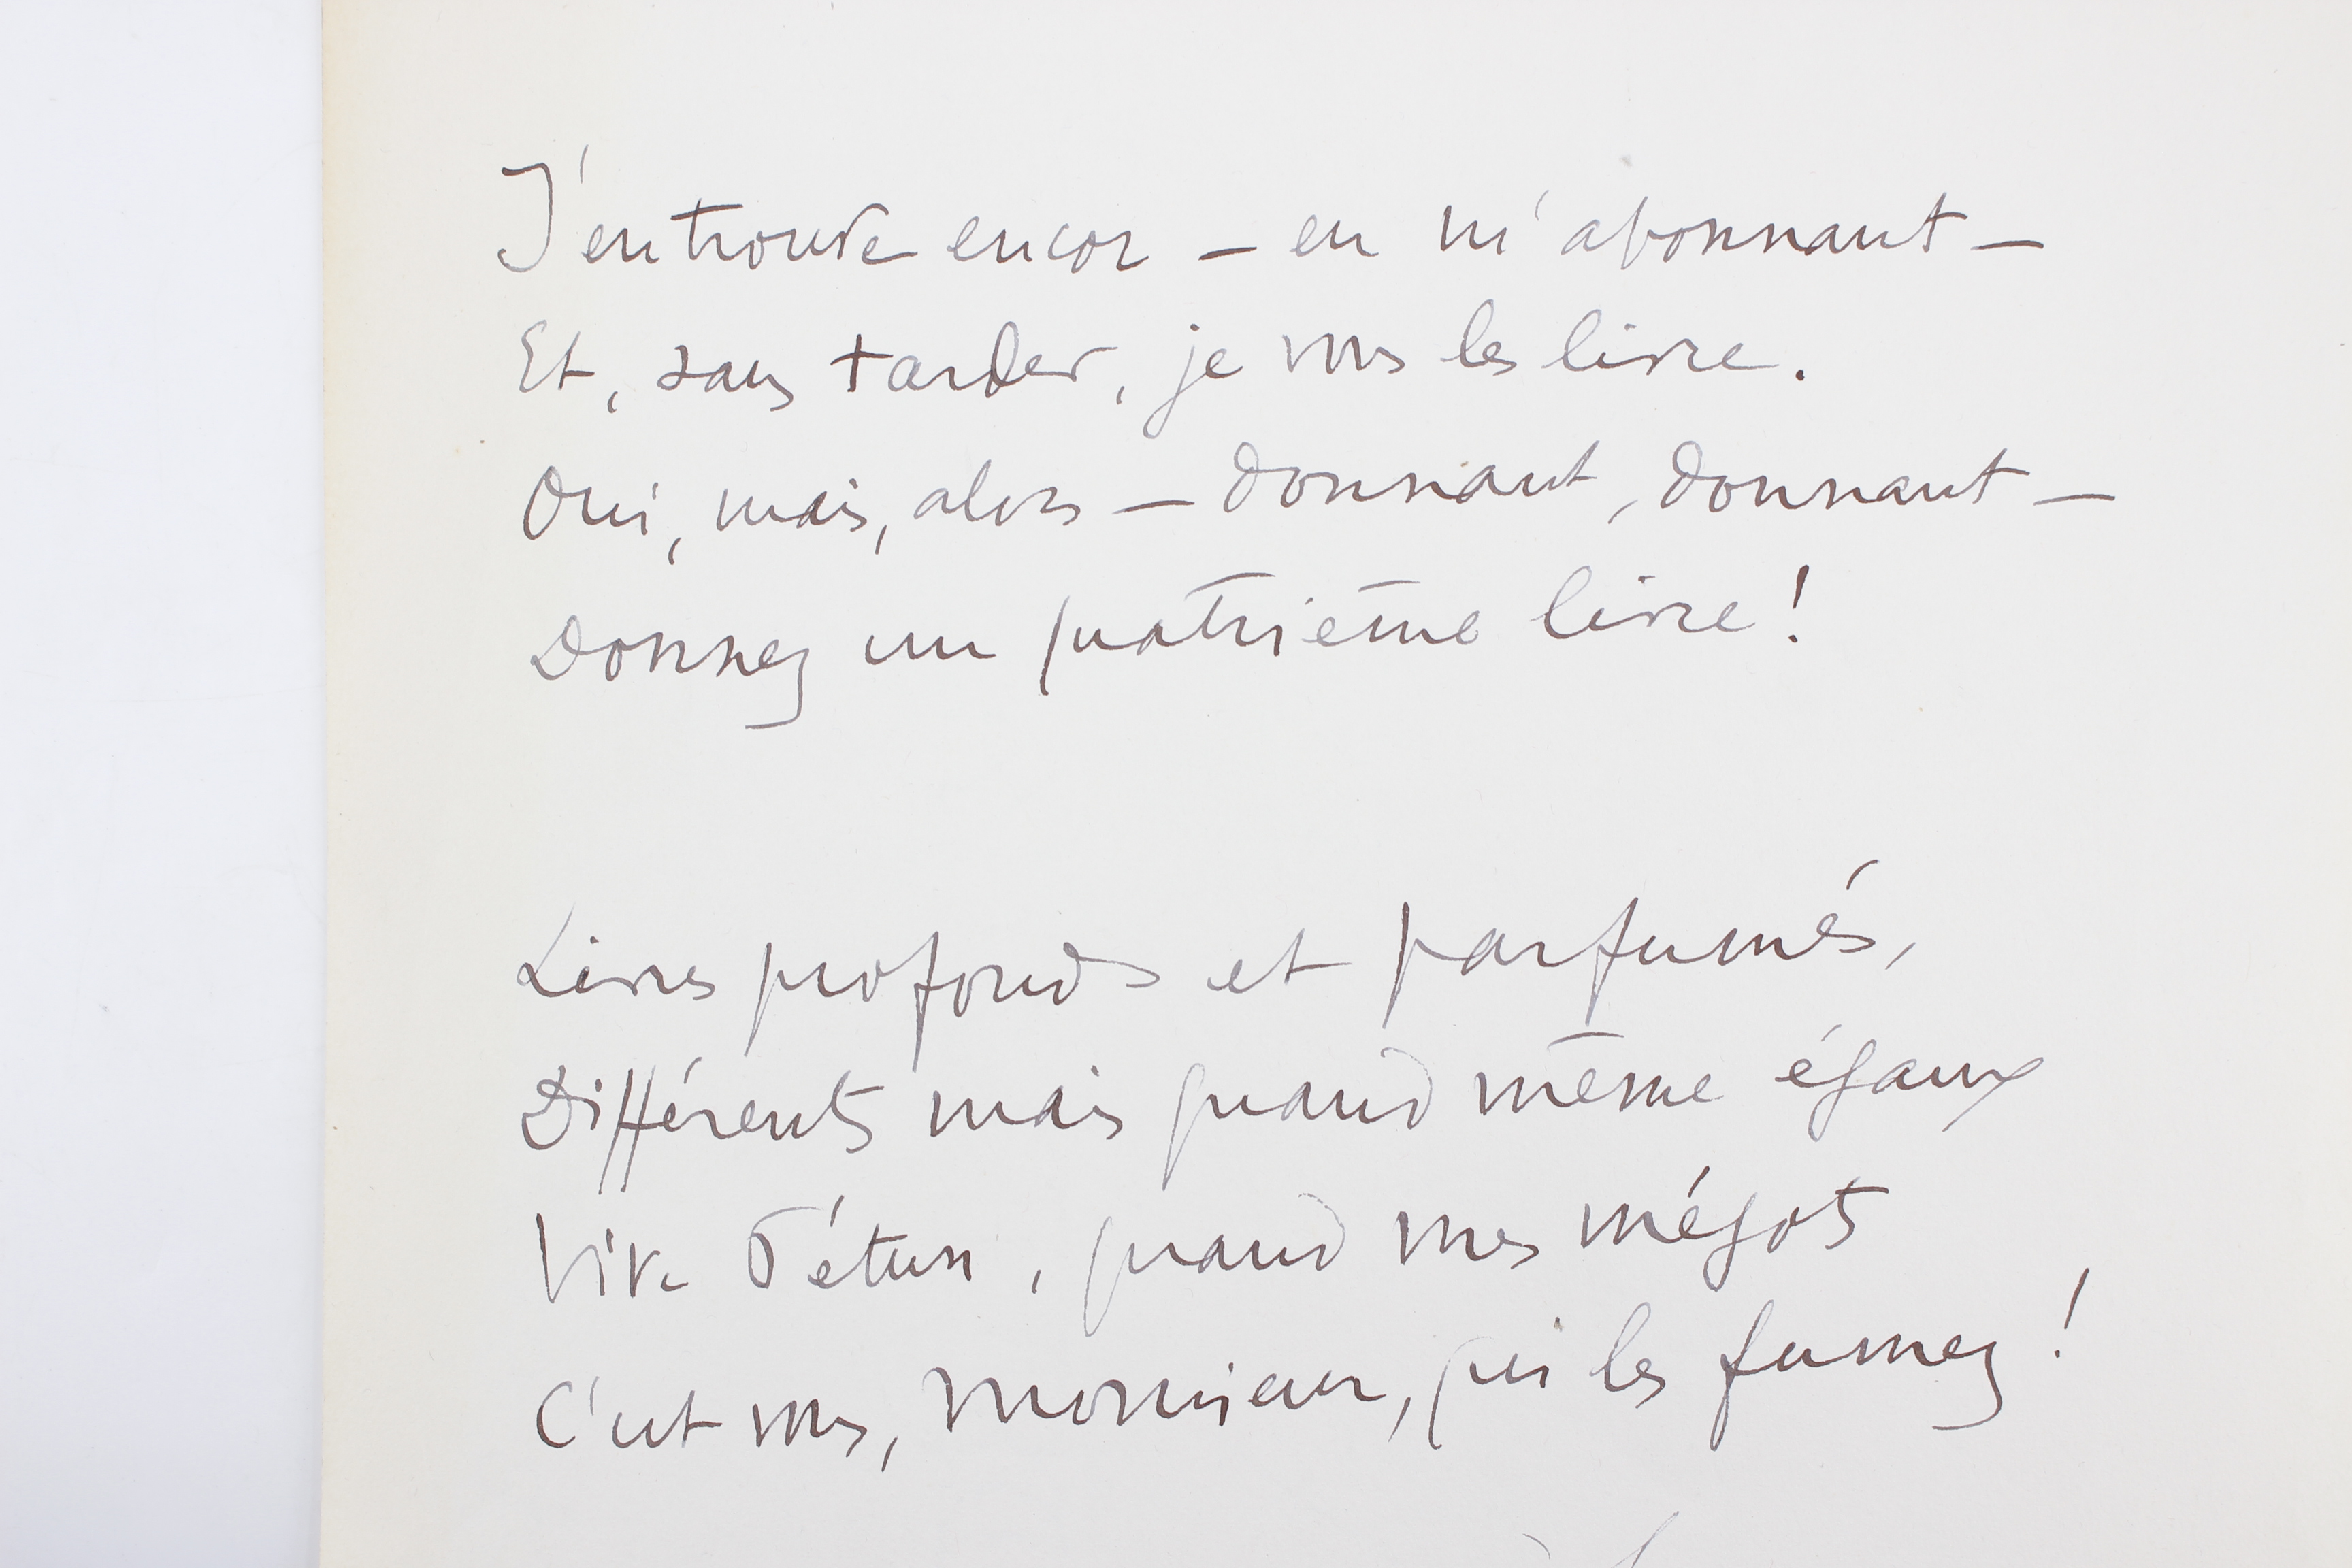 J'en trouve encor – en m'abonnant –
Et, sans tarder, je vous les livre.
Oui, mais, alors – donnant, donnant –
Donnez un quatrième livre !
Livres profonds et parfumés,
Différents mais quand même égaux
Vive Pétun, quand mes mégots
C'est vous, Monsieur, qui les fumez !